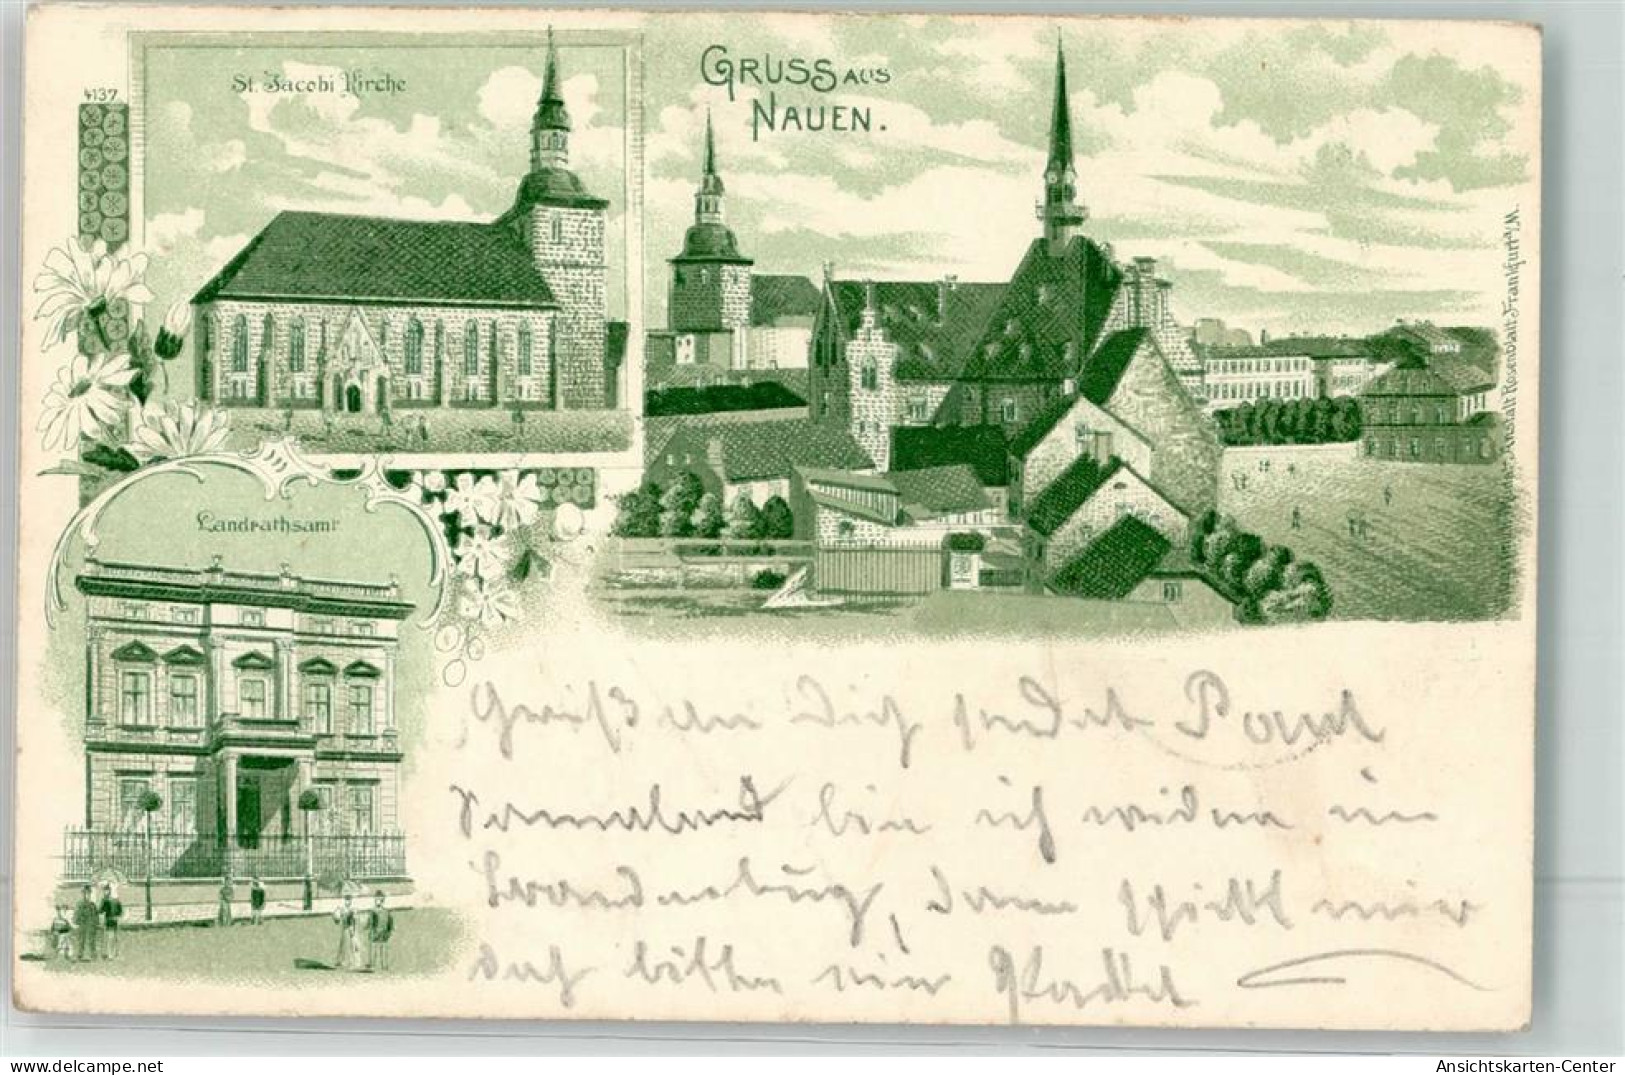 4137
St. Jacobi Kirche
GRUSS AUS
NAUEN.
Landrathsamt
Rosenblatt Frankfurt a/M.
Gruß an Dich sendet Paul
Sonnabend bin ich wieder in
Brandenburg, dann schickt mir
doch bitte ein Packet
Ansichtskarten-Center